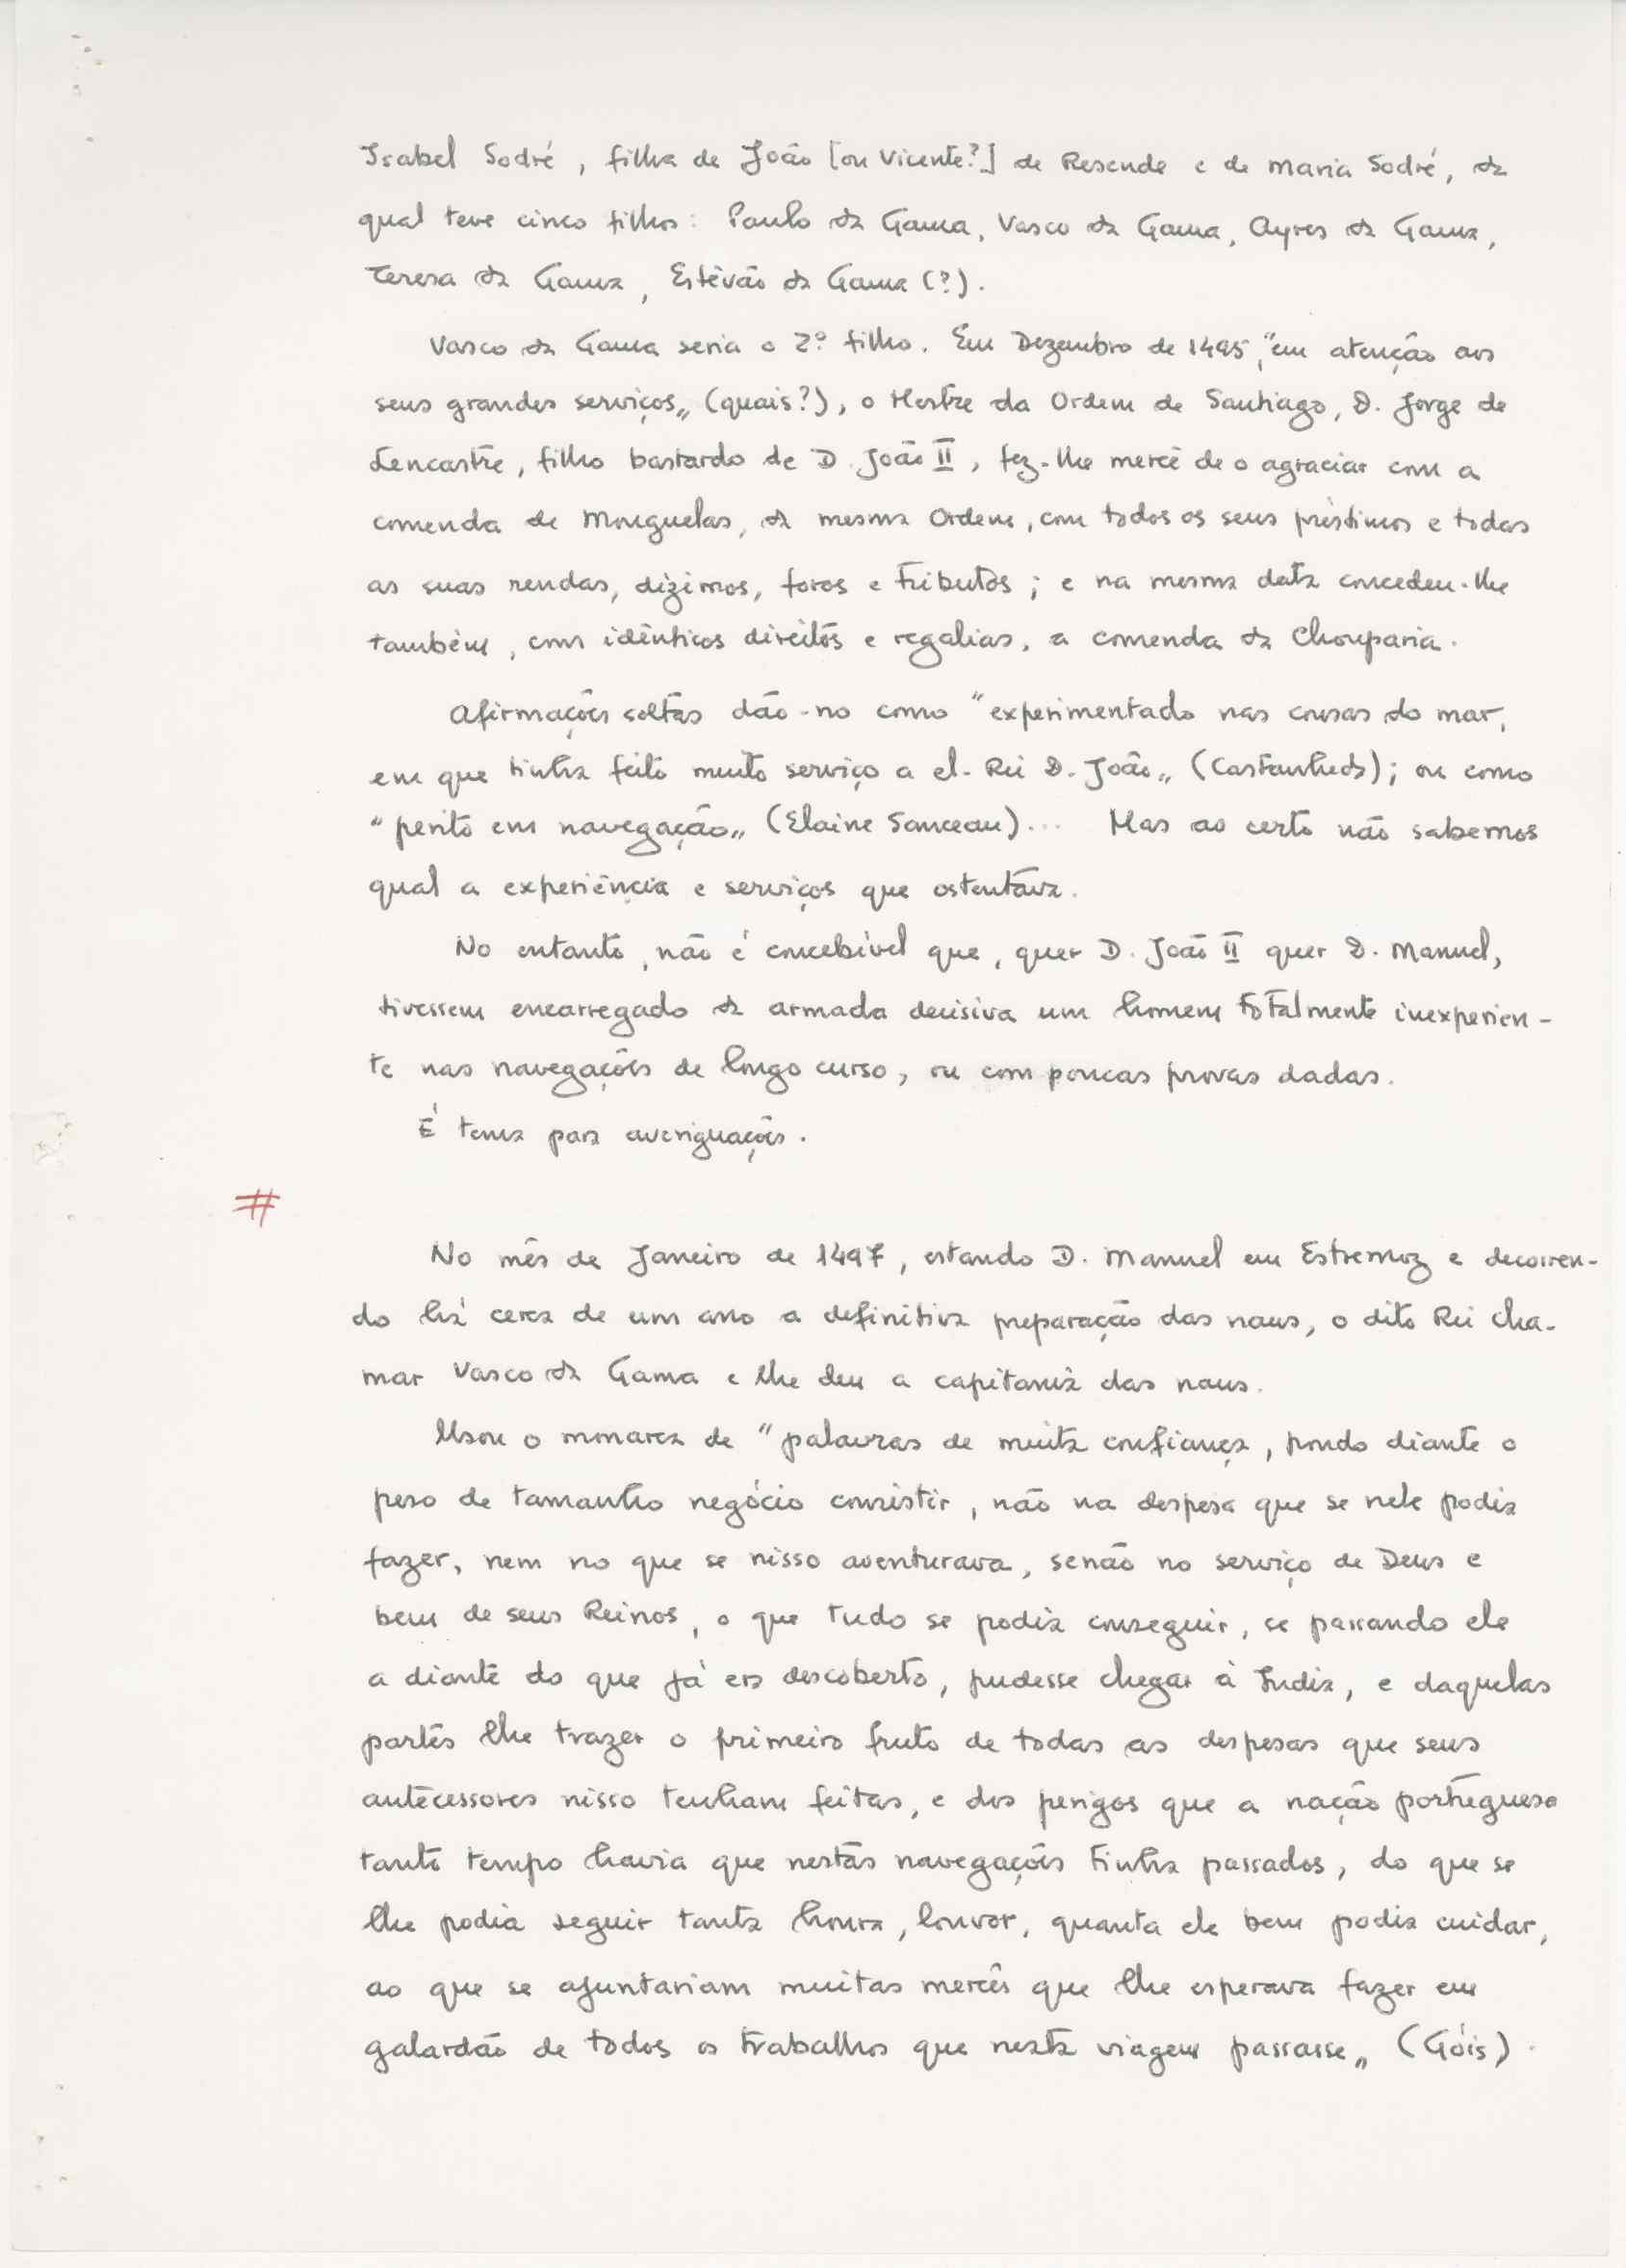 Isabel Sodré, filha de João [ou Vicente?] de Resende e de Maria Sodré, da
qual teve cinco filhos: Paulo da Gama, Vasco da Gama, Ayres da Gama,
Teresa da Gama, Estêvão da Gama (?).
Vasco da Gama seria o 2º filho. Em Dezembro de 1495, "em atenção aos
seus grandes serviços„ (quais?), o Mestre da Ordem de Santiago, D. Jorge de
Lencastre, filho bastardo de D. João II, fez-lhe mercê de o agraciar com a
comenda de Mouguelas, da mesma Ordem, com todos os seus préstimos e todas
as suas rendas, dízimos, foros e tributos; e na mesma data concedeu-lhe
também, com idênticos direitos e regalias, a comenda da Chouparia.
Afirmações soltas dão-no como "experimentado nas cousas do mar,
em que tinha feito muito serviço a el-Rei D. João„ (Castanheda); ou como
"perito em navegação„ (Elaine Sanceau)... Mas ao certo não sabemos
qual a experiência e serviços que ostentava.
No entanto, não é concebível que, quer D. João II quer D. Manuel,
tivessem encarregado da armada decisiva um homem totalmente inexperien-
te nas navegações de longo curso, ou com poucas provas dadas.
É tema para averiguações.
#
No mês de Janeiro de 1497, estando D. Manuel em Estremoz e decorren-
do há cerca de um ano a definitiva preparação das naus, o dito Rei cha-
mar Vasco da Gama e lhe deu a capitania das naus.
Usou o monarca de "palavras de muita confiança, pondo diante o
peso de tamanho negócio consistir, não na despesa que se nele podia
fazer, nem no que se nisso aventurava, senão no serviço de Deus e
bem de seus Reinos, o que tudo se podia conseguir, se passando ele
a diante do que já era descoberto, pudesse chegar à Índia, e daquelas
partes lhe trazer o primeiro fruto de todas as despesas que seus
antecessores nisso tenham feitas, e dos perigos que a nação portuguesa
tanto tempo havia que nestas navegações tinha passados, do que se
lhe podia seguir tanta honra, louvor, quanta ele bem podia cuidar,
ao que se ajuntariam muitas mercês que lhe esperava fazer em
galardão de todos os trabalhos que nesta viagem passasse„ (Góis).